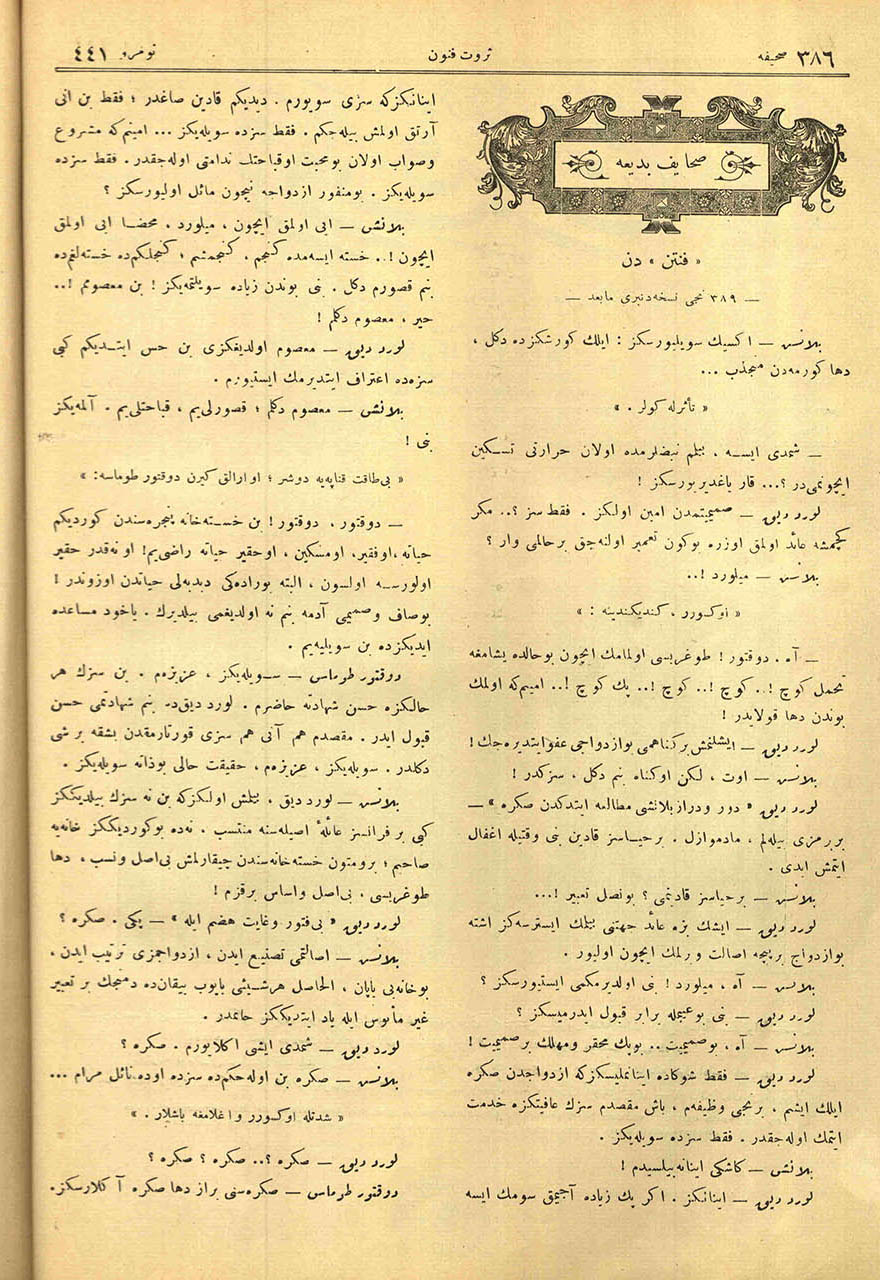 صحیفه ٣٨٦
ثروت فنون
نومرو ٤٤١
صحایف بدیعه
« فنتن » دن
— ٣٨٩ نجی نسخه‌دنبری مابعد —
بلانش — اکسیك سویلیورسکز : ایلك کورشکزده دکل ،
دها کورمه‌دن منجذب ...
« تأثرله کولر . »
— شمدی ایسه ، بیلم نبضلرمده اولان حرارتی تسکین
ایچونمی‌در ؟... قار یاغدیریورسکز !
لورد دیق — صمیمیتمدن امین اولکز . فقط سز ؟.. مکر
کچمشه عائد اولمق اوزره بوکون تعمیر اولنه‌جق برحالمی وار ؟
بلانش — میلورد !..
« اوکسورر ، کندیکندینه : »
— آه . دوقتور ! طوغریسی اولمامك ایچون بوحالده یشامغه
تحمل کوچ !.. کوچ !.. کوچ !.. پك کوچ !.. امینم‌که اولمك
بوندن دها قولایدر !
لورد دیق — ایشلنمش برکناهمی بوازدواجی عفوایتدیره‌جك !
بلانش — اوت ، لکن اوکناه بنم دکل ، سزکدر !
لورد دیق « دور ودراز بلانشی مطالعه ایتدکدن صکره » —
بربرمزی بیله‌لم ، مادموازل . برحیاسز قادین بنی وقتیله اغفال
ایتمش ایدی .
بلانش — برحیاسز قادنمی ؟ بونصل تعبیر !...
لورد دیق — ایشك بزه عائد جهتنی بیلمك ایسترسه‌کز اشته
بوازدواج برپیچه اصالت ویرمك ایچون اولیور .
بلانش — آه ، میلورد ! بنی اولدیرمکمی ایستیورسکز ؟
لورد دیق — بنی بوعیبمله برابر قبول ایدرمیسکز ؟
بلانش — آه ، بوصمیمیت .. بوپك محقر ومهلك برصمیمیت !
لورد دیق — فقط شوکاده اینانملیسکزکه ازدواجدن صکره
ایلك ایشم ، برنجی وظیفه‌م ، باش مقصدم سزك عافیتکزه خدمت
ایتمك اوله‌جقدر . فقط سزده سویله‌یکز .
بلانش — کاشکی اینانه‌بیلسیدم !
لورد دیق — اینانکز . اکر پك زیاده آجیمق سومك ایسه
اینانکزکه سزی سویورم . دیدیکم قادین صاغدر ؛ فقط بن انی
آرتق اولمش بیله‌جکم . فقط سزده سویله‌یکز ... امینم‌که مشروع
وصواب اولان بومحبت اوقباحتك ندامتی اوله‌جقدر . فقط سزده
سویله‌یکز . بومنفور ازدواجه نیچون مائل اولیورسکز ؟
بلانش — ایی اولمق ایچون ، میلورد . محضا ایی اولمق
ایچون !.. خسته ایسه‌مده کنجم . کنجمشم ؛ کنجلکم‌ده خسته‌لغم‌ده
بنم قصورم دکل . بنی بوندن زیاده سویلتمه‌یکز ! بن معصومم !..
خیر ، معصوم دکلم !
لورد دیق — معصوم اولدیغکزی بن حس ایتدیکم کبی
سزه‌ده اعتراف ایتدیرمك ایستیورم .
بلانش — معصوم دکلم ؛ قصورلی‌یم ، قباحتلی‌یم . آلمه‌یکز
بنی !
« بی‌طاقت قناپه‌یه دوشر ؛ اوارالق کیرن دوقتور طوماسه : »
— دوقتور ، دوقتور ! بن خسته‌خانه پنجره‌سندن کوردیکم
حیاته ، اوفقیر ، اومسکین ، اوحقیر حیاته راضی‌یم ! او نه‌قدر حقیر
اولورسه اولسون ، البته بوراده‌کی دبدبه‌لی حیاتدن اوزوندر !
بوصاف وصمیمی آدمه بنم نه اولدیغمی بیلدیرك . یاخود مساعده
ایدیکزده بن سویلیه‌یم .
دوقتور طوماس — سویله‌یکز ، عزیزه‌م . بن سزك هر
حالکزه حسن شهادته حاضرم . لورد دیق‌ده بنم شهادتمی حسن
قبول ایدر . مقصدم هم آنی هم سزی قورتارمقدن بشقه برشی
دکلدر . سویله‌یکز ، عزیزه‌م ، حقیقت حالی بوذاته سویله‌یکز .
بلانش — لورد دیق ، بیلمش اولکزکه بن نه سزك بیلدیککز
کبی بر فرانسز عائلهٔ اصیله‌سنه منتسب . نه‌ده بوکوردیککز خانه‌یه
صاحبم ؛ برومتون خسته‌خانه‌سندن چیقارلمش بی‌اصل ونسب ، دها
طوغریسی ، بی‌اصل واساس برقزم !
لورد دیق « بی‌فتور وغایت هضم ایله » — پکی . صکره ؟
بلانش — اصالتمی تصنیع ایدن ، ازدواجمزی ترتیب ایدن ،
بوخانه‌یی یاپان ، الحاصل هرشیئی یاپوب بیقان‌ده دمنجك بر تعبیر
غیر مأنوس ایله یاد ایتدیککز خانمدر .
لورد دیق — شمدی ایشی اکلایورم . صکره ؟
بلانش — صکره بن اوله‌جکم‌ده سزده اوده نائل مرام ...
« شدتله اوکسورر واغلامغه باشلار . »
لورد دیق — صکره ؟.. صکره ؟ صکره ؟
دوقتور طوماس — صکره‌سنی براز دها صکره آکلارسکز .